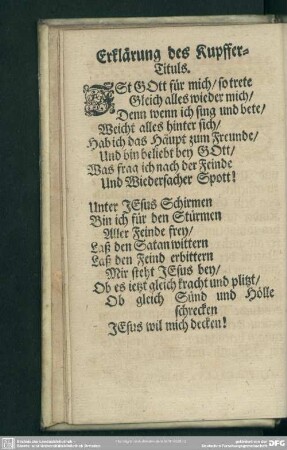 Erklärung des Kupffer-
Tituls.
ISt GOtt für mich/ so trete
Gleich alles wieder mich/
Denn wenn ich sing und bete/
Weicht alles hinter sich/
Hab ich das Häupt zum Freunde/
Und bin beliebt bey GOtt/
Was frag ich nach der Feinde
Und Wiedersacher Spott!
Unter JEsus Schirmen
Bin ich für den Stürmen
Aller Feinde frey/
Laß den Satan wittern
Laß den Feind erbittern
Mir steht JEsus bey/
Ob es ietzt gleich kracht und plitzt/
Ob gleich Sünd und Hölle
schrecken
JEsus wil mich decken!